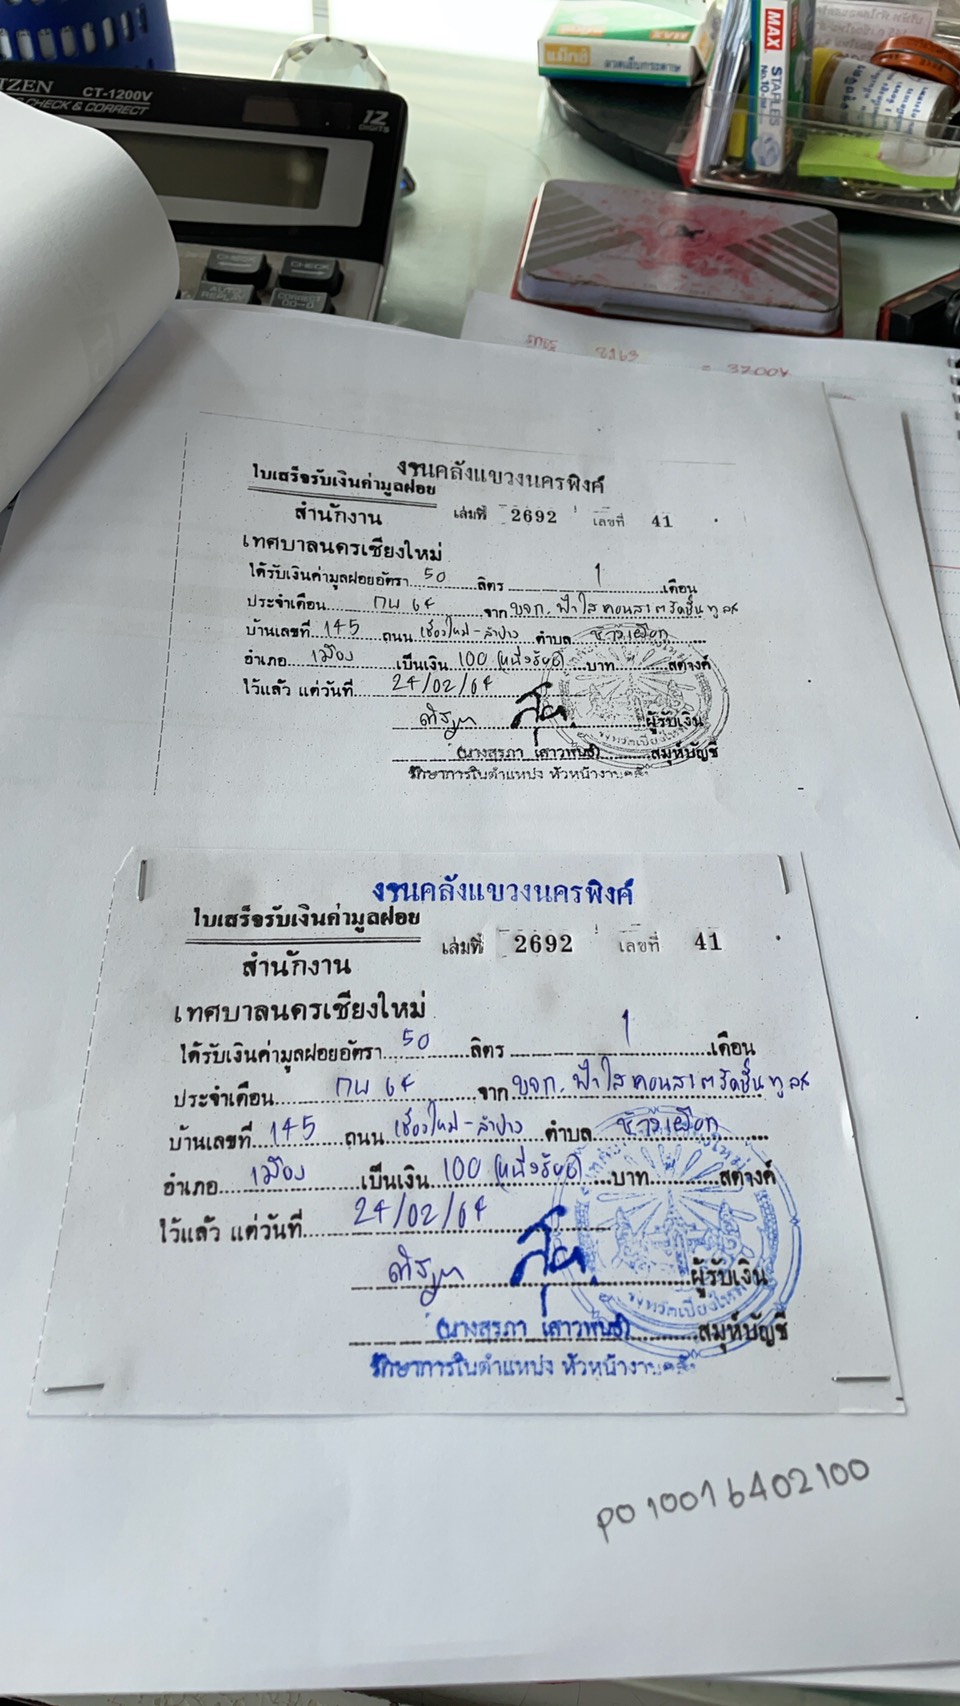 CT-1200V
CHECK & CORRECT
12
DIGITS
CHECK
MAX
แม็กซ์
ลวดเย็บกระดาษ
MAX
STAPLES
No.10
งานคลังแขวงนครพิงค์
ใบเสร็จรับเงินค่ามูลฝอย
สำนักงาน เล่มที่ 2692 เลขที่ 41
เทศบาลนครเชียงใหม่
ได้รับเงินค่ามูลฝอยอัตรา 50 ลิตร 1 เดือน
ประจำเดือน กพ 64 จาก บจก. ฟ้าใสคอนสตรัคชั่น
บ้านเลขที่ 145 ถนน เชียงใหม่-ลำปาง ตำบล ช้างเผือก
อำเภอ เมือง เป็นเงิน 100 (หนึ่งร้อย) บาท สตางค์
ไว้แล้ว แต่วันที่ 24/02/64
ผู้รับเงิน
(นางสุรภา เสาวพันธ์) สมุห์บัญชี
รักษาการในตำแหน่ง หัวหน้างานคลัง
งานคลังแขวงนครพิงค์
ใบเสร็จรับเงินค่ามูลฝอย
เล่มที่ 2692 เลขที่ 41
สำนักงาน
เทศบาลนครเชียงใหม่
ได้รับเงินค่ามูลฝอยอัตรา 50 ลิตร 1 เดือน
ประจำเดือน กพ 64 จาก บจก. ฟ้าใสคอนสตรัคชั่น
บ้านเลขที่ 145 ถนน เชียงใหม่-ลำปาง ตำบล ช้างเผือก
อำเภอ เมือง เป็นเงิน 100 (หนึ่งร้อย) บาท สตางค์
ไว้แล้ว แต่วันที่ 24/02/64
ผู้รับเงิน
(นางสุรภา เสาวพันธ์) สมุห์บัญชี
รักษาการในตำแหน่ง หัวหน้างานคลัง
PO10016402100